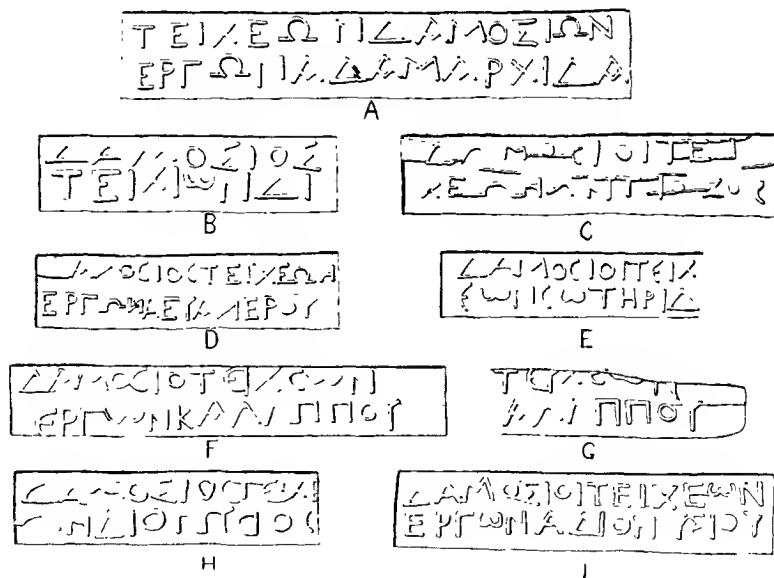 ΤΕΙΧΕΩΝ ΔΑΜΟΣΙΩΝ
ΕΡΓΩΝ Α ΔΑΜΑΡΧΙΔΑ
A
ΔΑΜΟΣΙΟΣ
ΤΕΙΧΙωΝ
B
ΔΑΜΟCΙΟΙΤΕΙ
C
ΔΑΜΟCΙΟCΤΕΙΧΕΩΝ
ΕΡΓωΝ
D
ΔΑΜΟCΙΟΙΤΕΙΧ
ΕωΝCωΤΗΡΙΔΑ
E
ΔΑΜΟCΙΟΤΕΙΧΕωΝ
ΕΡΓωΝΚΑΛΛΙΠΠΟΥ
F
ΤΕΙΧΕωΝ
ΛΛΙΠΠΟΥ
G
ΔΑΜΟΣΙΟCΤΕΙΧΕ
H
ΔΑΜΟΣΙΟΙΤΕΙΧΕωΝ
ΕΡΓωΝΑΔΙΟΝΥΣΙΟΥ
I